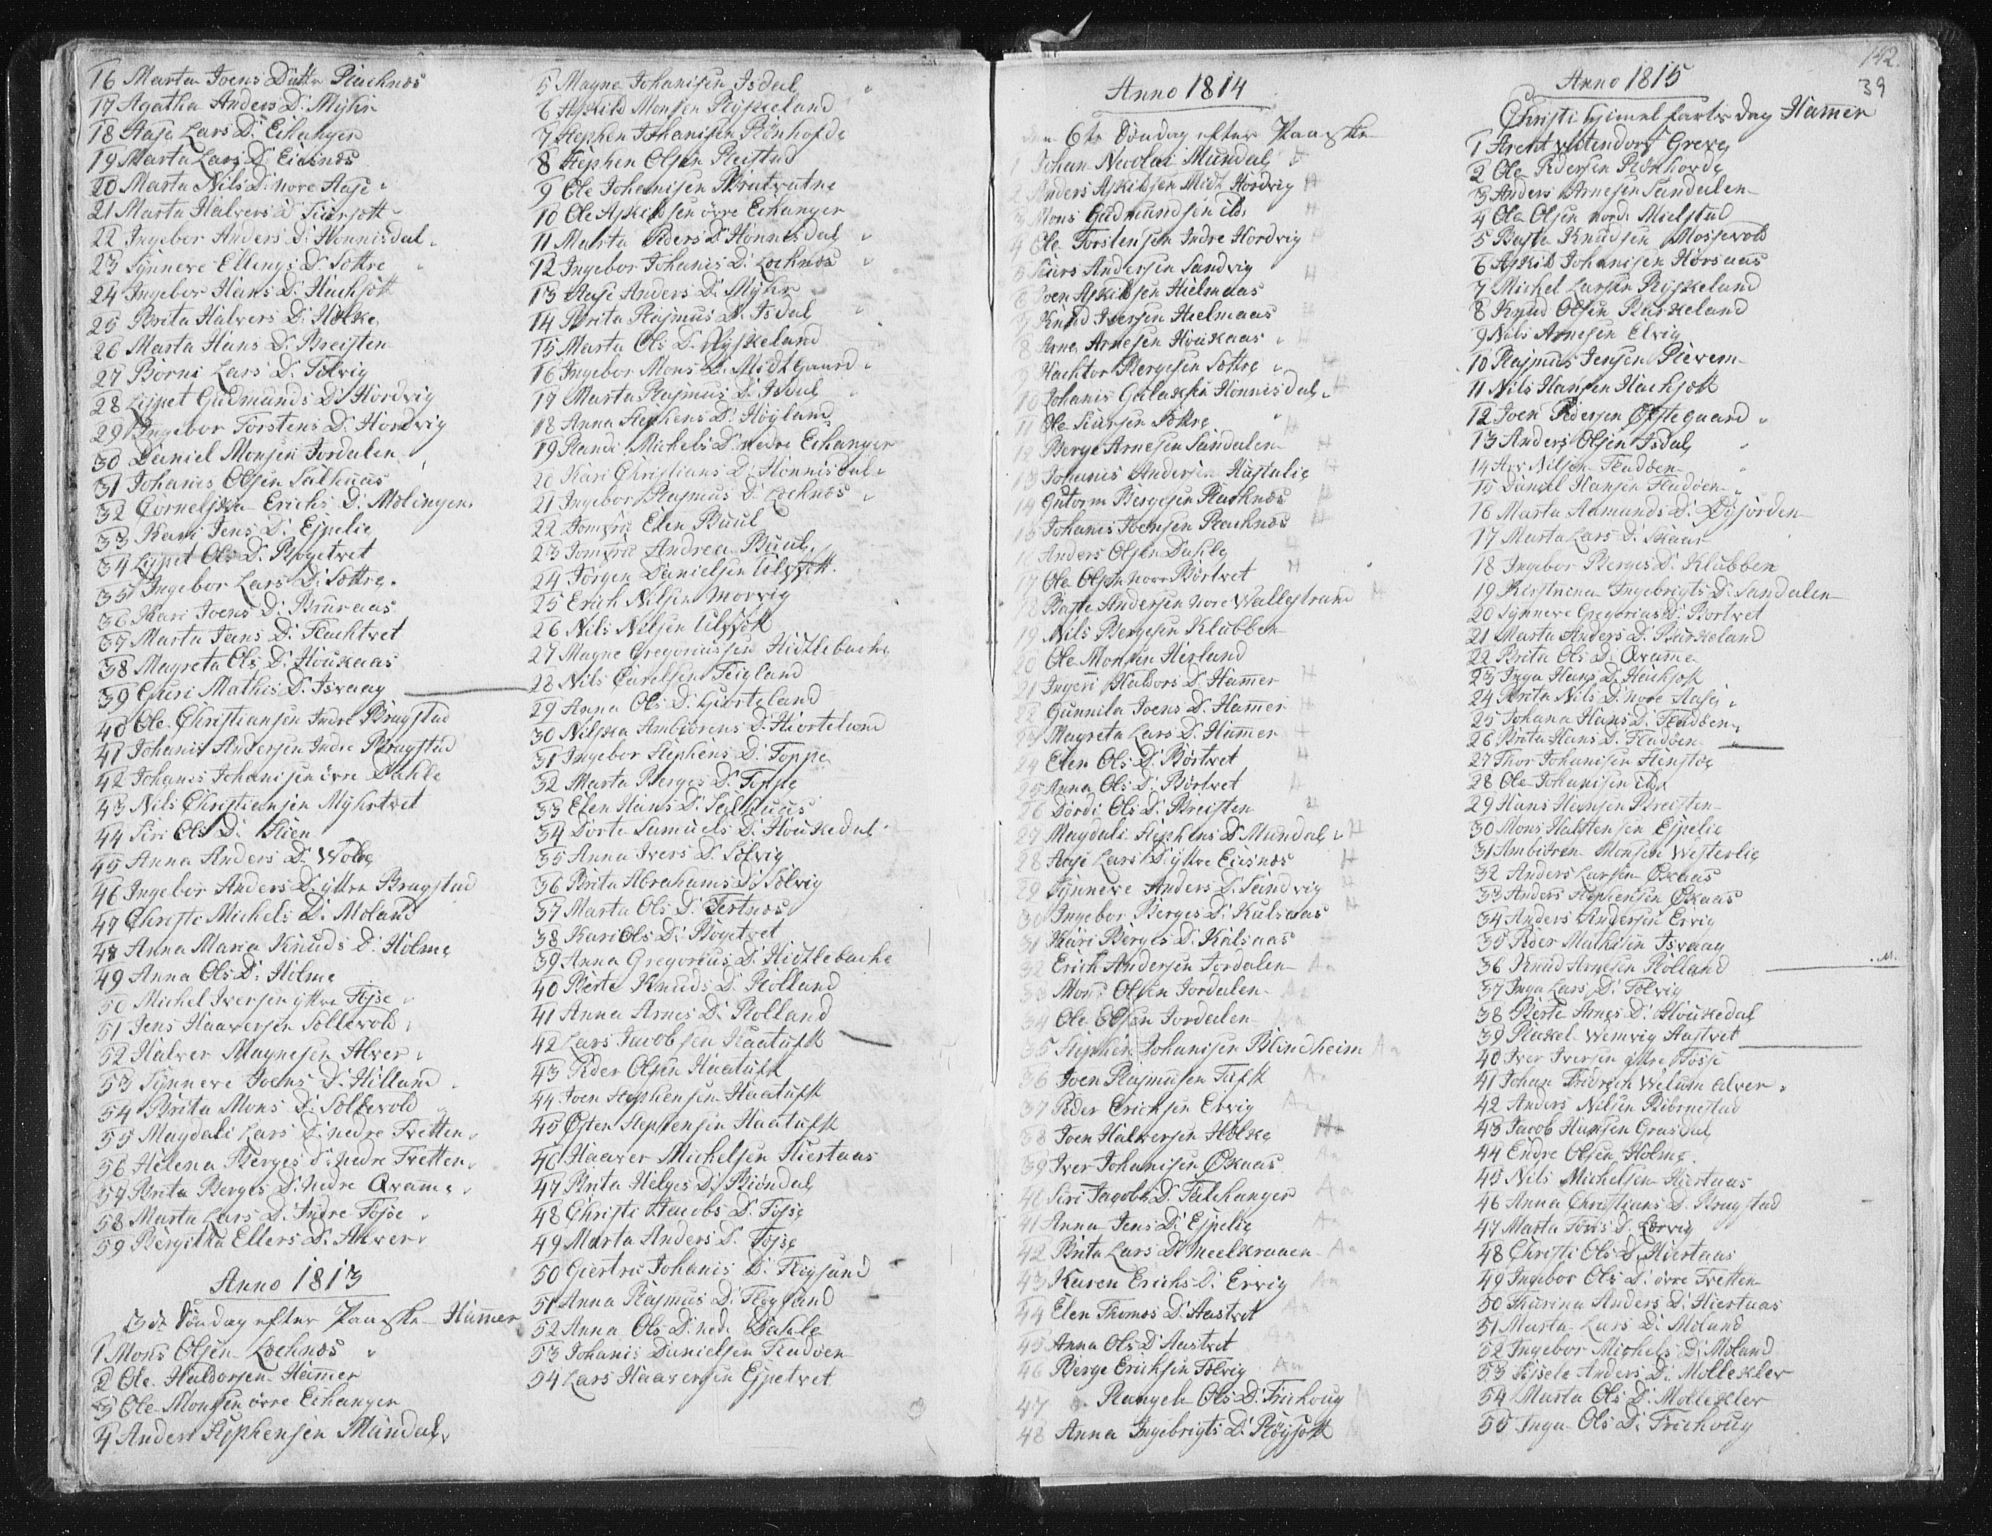 16 Marta Joens Dotter Racknæs
17 Agatha Anders D. Myhr
18 Aase Lars D. Eikanger
19 Marta Lars D. Eienæs
20 Marta Nils D. nore Aase
21 Marta Halvers D.
22 Ingebor Anders D. Honnisdal
23 Synneve Ellings D. Sættre
24 Ingebor Hans D.
25 Brita Halvers D. Holke
26 Marta Hans D. Breisten
27 Borni Lars D. Tolvig
28 Lispet Gudmunds D. Hordvig
29 Ingebor Torstens D. Hordvig
30 Daniel Monsen Jordalen
31 Johanes Olsen Salhuus
32 Erichs D. Molingen
33 Kari Jens D. Espelie
34 Lispet Ols D.
35 Ingebor Lars D. Sættre
36 Kari Joens D. Bruraas
37 Marta Jens D. Flachtvet
38 Magreta Ols D. Houkaas
39 Guri Mathis D. Isvaag
40 Ole Christiansen Indre Bragstad
41 Johanis Andersen Indre Bragstad
42 Johanis Johanisen øvre Dahle
43 Nils Christiansen Myhrtvet
44 Siri Ols D.
45 Anna Anders D.
46 Ingebor Anders D. yttre Bragstad
47 Christi Michels D. Moland
48 Anna Maria Knuds D. Holme
49 Anna Ols D. Holme
50 Michel Iversen yttre Fosse
51 Jens Haaversen Sollevold
52 Halver Magnesen Alver
53 Synneve Joens D. Hilland
54 Brita Mons D. Sollevold
55 Magdali Lars D. nedre Tvetten
56 Helena Berges D. nedre Tvetten
57 Brita Berges D. nedre Qvamme
58 Marta Lars D. Indre Fosse
59 Ellers D. Alver
Anno 1813
3de Søndag efter Paaske Hammer
1 Mons Olsen Locknæs
2 Ole Haldorsen Hammer
3 Ole Monsen øvre Eikanger
4 Anders Stephensen Mundal
5 Magne Johanisen Isdal
6 Askild Monsen Ryskeland
7 Stephen Johanisen
8 Stephen Olsen
9 Ole Johanisen Bratvatne
10 Ole Askildsen øvre Eikanger
11 Marta Peders D. Honnisdal
12 Ingebor Johanis D. Locknæs
13 Aase Anders D. Myhr
14 Brita Rasmus D. Isdal
15 Marta Ols D. Ryskeland
16 Ingebor Mons D. Midtgaard
17 Marta Rasmus D. Isdal
18 Anna Stephens D. Høgland
19 Randi Michels D. nedre Eikanger
20 Kari Christians D. Honnisdal
21 Ingebor Rasmus D. Locknæs
22 Jomfru Elen Buul
23 Jomfru Andrea Buul
24 Jørgen Danielsen
25 Erich Nilsen Morvig
26 Nils Nilsen
27 Magne Gregoriussen Hietlebacke
28 Nils Carelsen Teigland
29 Anna Ols D. Hiorteland
30 Ambiorens D. Hiorteland
31 Ingebor Stephens D. Toppe
32 Marta Berges D. Toppe
33 Elen Hans D. Salhuus
34 Dorte Samuels D. Houkedal
35 Anna Ivers D. Solvig
36 Brita Abrahams D. Solvig
37 Marta Ols D. Tertnæs
38 Kari Ols D.
39 Anna Gregorius D. Hietlebacke
40 Berte Knuds D. Rolland
41 Anna Arnes D. Rolland
42 Lars Jacobsen Haatuft
43 Peder Olsen Haatuft
44 Joen Stephensen Haatuft
45 Østen Stephensen Haatuft
46 Haaver Michelsen Hiertaas
47 Brita Helges D. Biøndal
48 Christi Jacobs D. Fosse
49 Marta Anders D. Fosse
50 Giertru Johanis D. Flogsand
51 Anna Rasmus D. Flogsand
52 Anna Ols D. nedr Dahle
53 Johanis Danielsen Fladøen
54 Lars Haaversen Espetvet
Anno 1814
6te Søndag efter Paaske
1 Johan Nicolai Mundal H
2 Anders Askildsen Midt Hordvig H
3 Mons Gudmundsen ibd. H
4 Ole Torstensen Indre Hordvig H
5 Siurs Andersen Sandvig H
6 Joen Askildsen Hielmaas H
7 Knud Iversen Hielmaas H
8 Arne Arnesen Houkaas H
9 Hacktor Bergesen Sættre H
10 Johanis Honnisdal H
11 Ole Siursen Sættre H
12 Berge Arnesen Sandalen H
13 Johannes Andersen Hustulie H
14 Gutorm Bergesen Racknæs H
15 Johanis Joensen Racknæs H
16 Anders Olsen Dahle H
17 Ole Olsen nore Børtvet H
18 Baste Andersen nore Wallestrand H
19 Nils Bergesen Klubben
20 Ole Monsen Herland
21 Ingeri Haldors D. Hammer H
22 Gunnila Joens D. Hammer H
23 Magreta Lars D. Hammer H
24 Elen Ols D. Børtvet H
25 Anna Ols D. Børtvet H
26 Dordi Ols D. Breisten H
27 Magdali Stephens D. Mundal H
28 Aase Lars D. yttre Eienæs H
29 Synneve Anders D. Sandvig H
30 Ingebor Berges D. Kalsaas H
31 Kari Berges D. Kalsaas
32 Erich Andersen Jordalen Aa
33 Mons Olsen Jordalen Aa
34 Ole Olsen Jordalen Aa
35 Stephen Johanisen Blindheim Aa
36 Joen Rasmusen Tuft Aa
37 Peder Ericksen Ervig Aa
38 Joen Halversen Holke
39 Iver Johanisen Økaas Aa
40 Siri Jacobs D. Falckanger Aa
41 Anna Jens D. Espelie Aa
42 Brita Lars D. Meelkraaen Aa
43 Karen Erichs D. Ervig Aa
44 Elen Thomes D. Hastvet Aa
45 Anna Ols D. Hastvet Aa
46 Berge Erichsen Tolvig Aa
47 Rangele Ols D. Frichoug
48 Anna Ingebrigts D.
Anno 1815
142.
39
Christi himmel farts dag Hammer
1 Greve
2 Ole Pedersen
3 Anders Arnesen Sandalen
4 Ole Olsen nordr Mielstad
5 Baste Knudsen Mossevold
6 Askild Johanisen Horsaas
7 Michel Larsen Ryskeland
8 Knud Olsen Raskeland
9 Nils Arnesen Elvig
10 Rasmus Jensen
11 Nils Hansen
12 Joen Pedersen Øfstegaard
13 Anders Olsen Isdal
14 Nilsen Fladøen
15 Daniel Hansen Fladøen
16 Marta Aamunds D.
17 Marta Lars D. Skaar
18 Ingebor Berges D. Klubben
19 Kirstnena Ingebrigts D. Sandalen
20 Synneve Gregorius D. Børtvet
21 Marta Anders D. Raskeland
22 Brita Ols D. Qvamme
23 Inga Hans D.
24 Brita Nils D. nore Aase
25 Johana Hans D. Fladøen
26 Brita Hans D. Fladøen
27 Thor Johanisen
28 Ole Johanisen ibd.
29 Hans Hansen Breisten
30 Mons Halstensen Espelie
31 Ambiøren Monsen Westerlie
32 Anders Larsen Økaas
33 Anders Stephensen Økaas
34 Anders Andersen Ervig
35 Peder Mathisen Isvaag
36 Knud Arnesen Rolland M.
37 Inga Lars D. Tolvig
38 Berte Arnes D. Houkedal
39 Rackel Wemvig Hastvet
40 Iver Iversen yttre Fosse
41 Johan Fridrich Welum Alver
42 Anders Nilsen Bibrustad
43 Jacob Hansen Grasdal
44 Endre Olsen Holme
45 Nils Michelsen Hiertaas
46 Anna Christians D. Bragstad
47 Marta D. Lervig
48 Christi Ols D. Hiertaas
49 Ingebor Ols D. øvre Tvetten
50 Karina Anders D. Hiertaas
51 Marta Lars D. Moland
52 Ingebor Michels D. Moland
53 Anders D. Mollekler
54 Marta Ols D. Mollekler
55 Inga Ols D. Frichoug